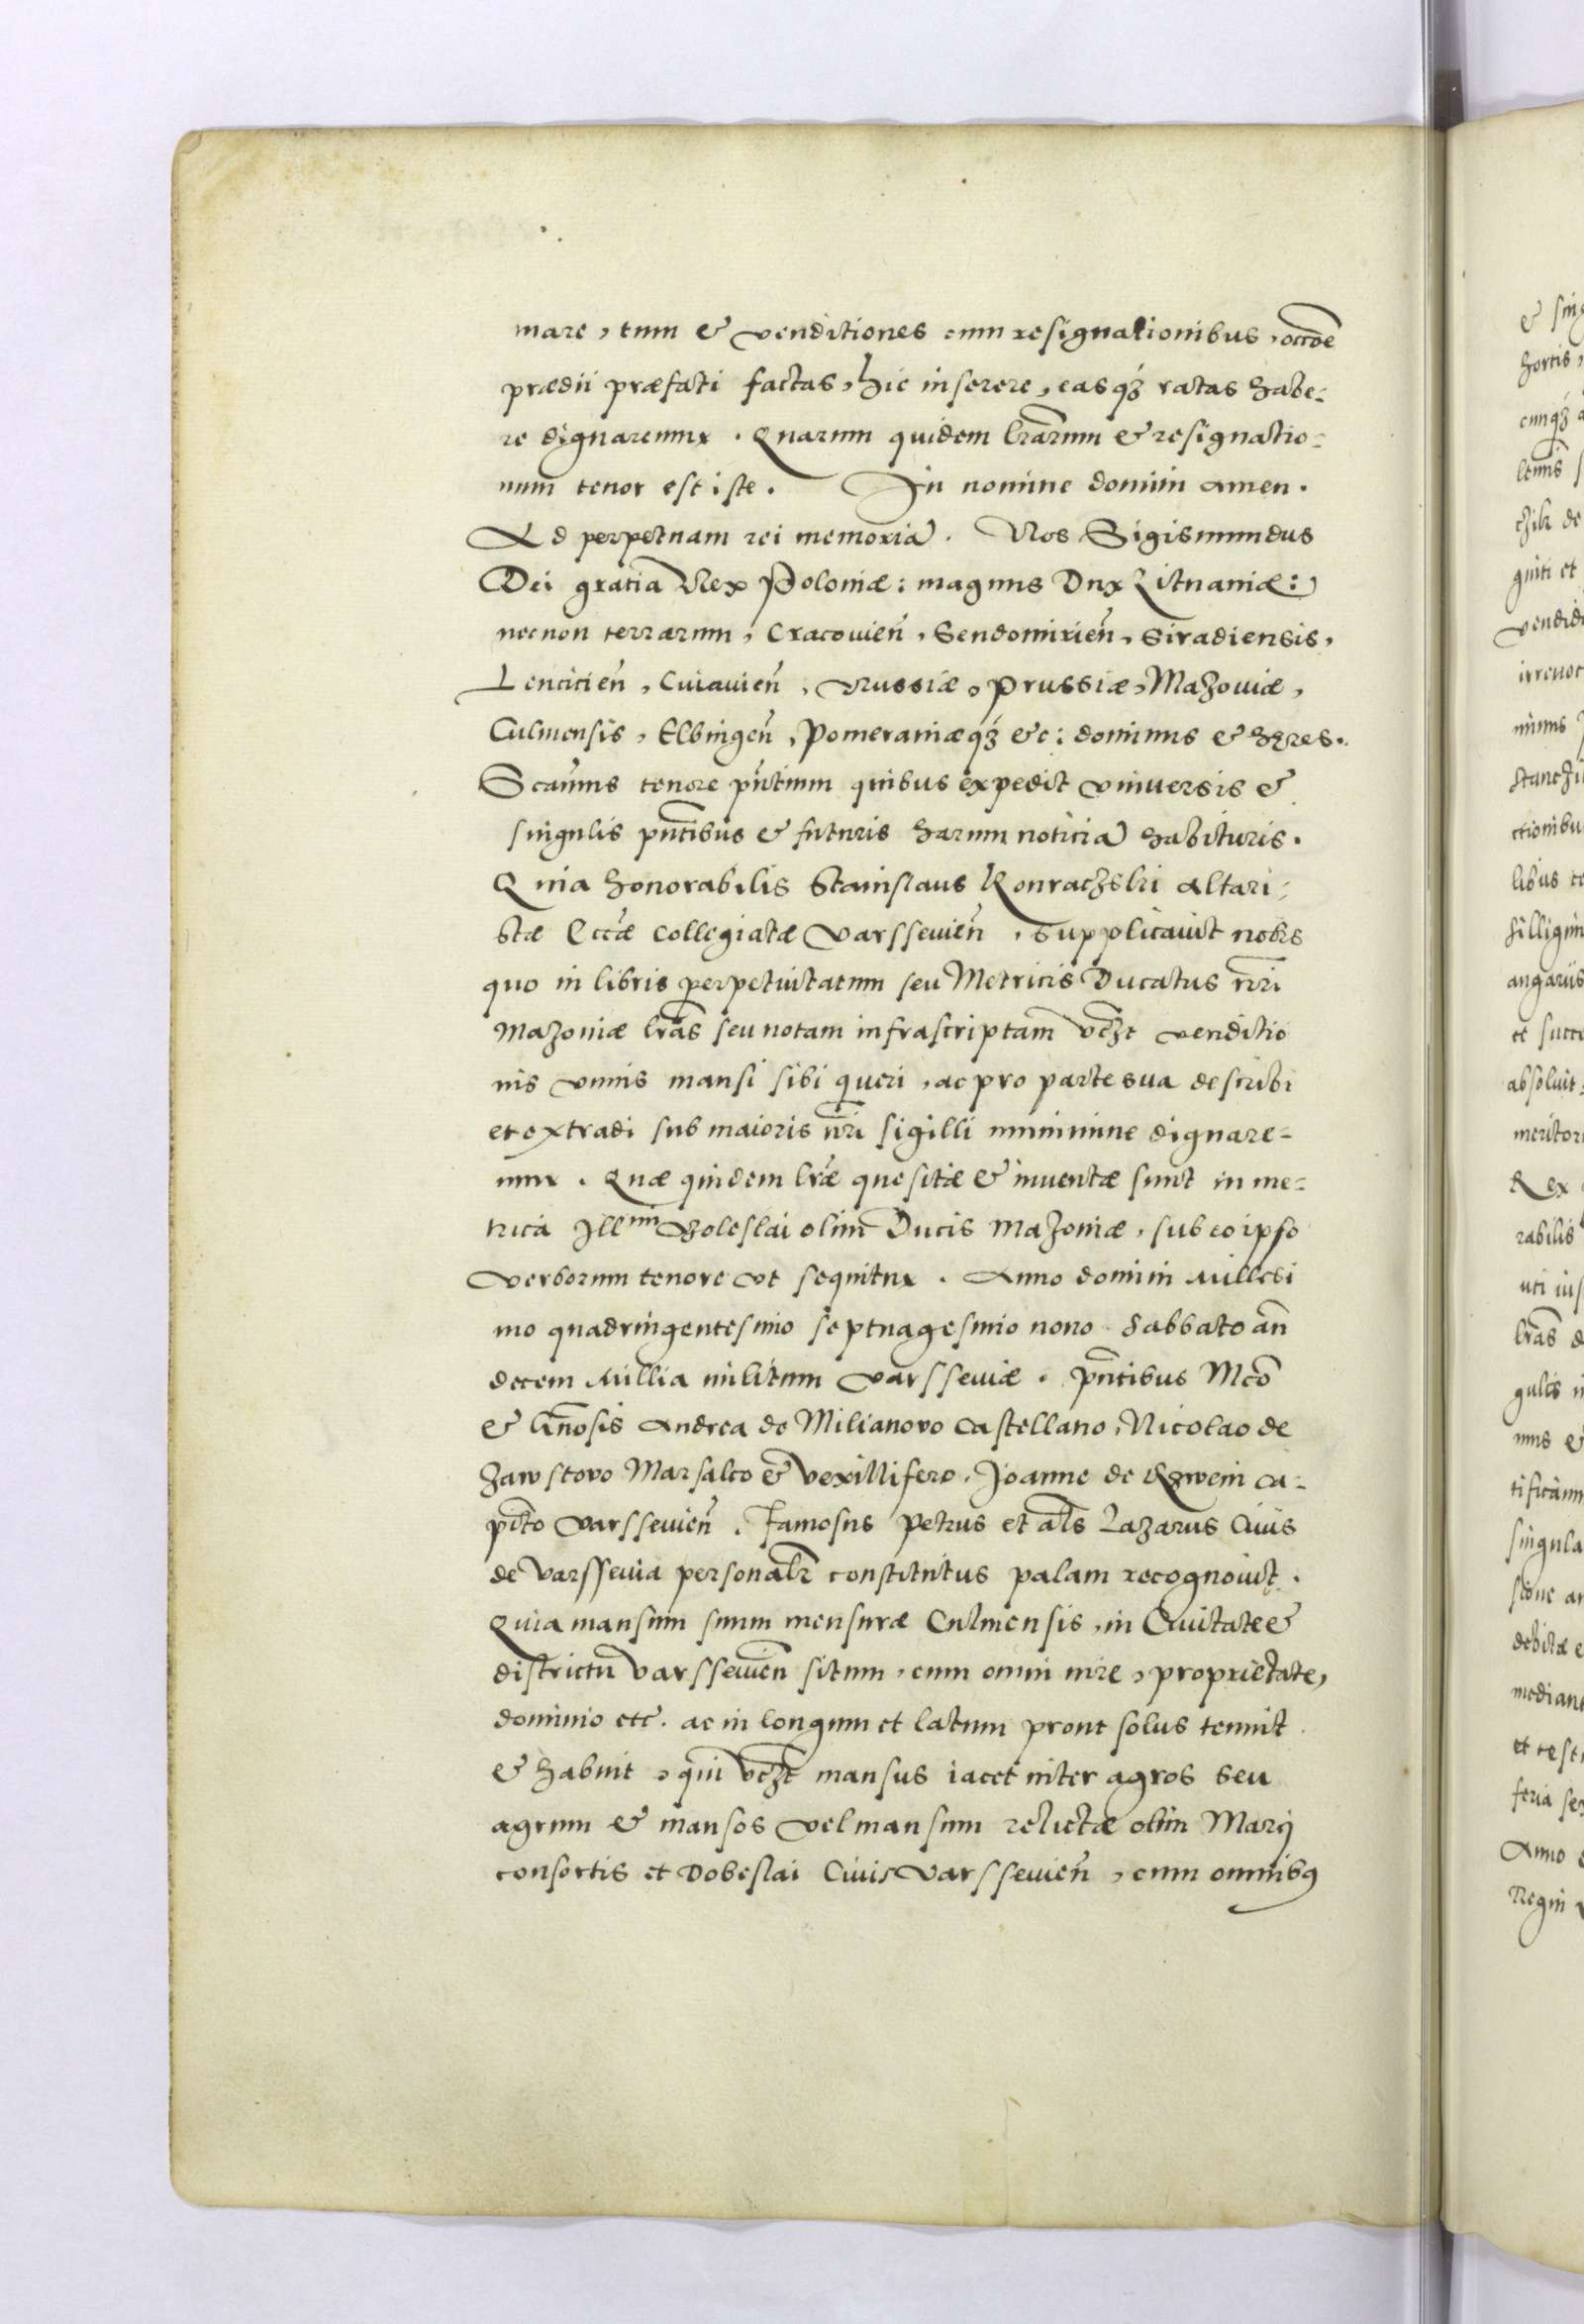 mare, tum & venditiones cum resignationibus, occõe
prædii præfati factas, hic inserere, easq́ꝫ ratas habe:
re dignaremur. Quarum quidem lr̃arum & resignatio:
num tenor est iste. In nomine domini amen.
Ad perpetuam rei memoriã. Nos Sigismundus
Dei gratia Rex Poloniæ: magnus Dux Lituaniæ:
necnon terrarum, Cracovieñ, Sendomirieñ, Siradiensis,
Lencicieñ, Cuiavieñ, Russiæ, Prussiæ, Mazoviæ,
Culmensis, Elbingeñ, Pomeraniæq́ꝫ &c: dominus & hęres.
Scaũms tenore pñtium quibus expedit vniuersis &
singulis pñtibus & futuris harum noticiã habituris.
Quia honorabilis Stanislaus Konraczski altari:
stæ Eccæ̃ Collegiatæ Varsseuieñ, supplicauit nobis
quo in libris perpetuitatum seu Metricis Ducatus nr̃i
Mazoniæ lr̃as seu notam infrascriptam vcꝫt venditio
nis vnius mansi sibi queri, ac pro parte sua describi
et extradi sub maioris nr̃i sigilli munimine dignare-
mur. Quæ quidem lr̃æ quesitæ & inuentæ sunt in me:
trica Illmi Boleslai olim Ducis Mazoniæ, sub eo ipso
verborum tenore vt sequitur. Anno domini Millesi
mo quadringentesimo septuagesimo nono Sabbato añ
decem Millia militum Varsseuiæ. pñtibus Mcõ
& Gñosis Andrea de Milianovo Castellano, Nicolao de
Zawstovo Marsalco & vexillifero. Joanne de Rzwein Ca:
pit̃o Varsseuieñ. Famosus Petrus et al̃s Lazarus Ciuis
de Varsseuia personalr̃ constitutus palam recognouit.
Quia mansum suum mensuræ Culmensis, in Ciuitate &
districtu Varsseuieñ situm, cum omni iure, proprietate,
dominio etc. ac in longum et latum prout solus tenuit
& habuit, qui vcꝫt mansus iacet inter agros seu
agrum & mansos vel mansum relictæ olim Marij
consortis et Dobeslai Ciuis Varsseuieñ, cum omnibꝰ